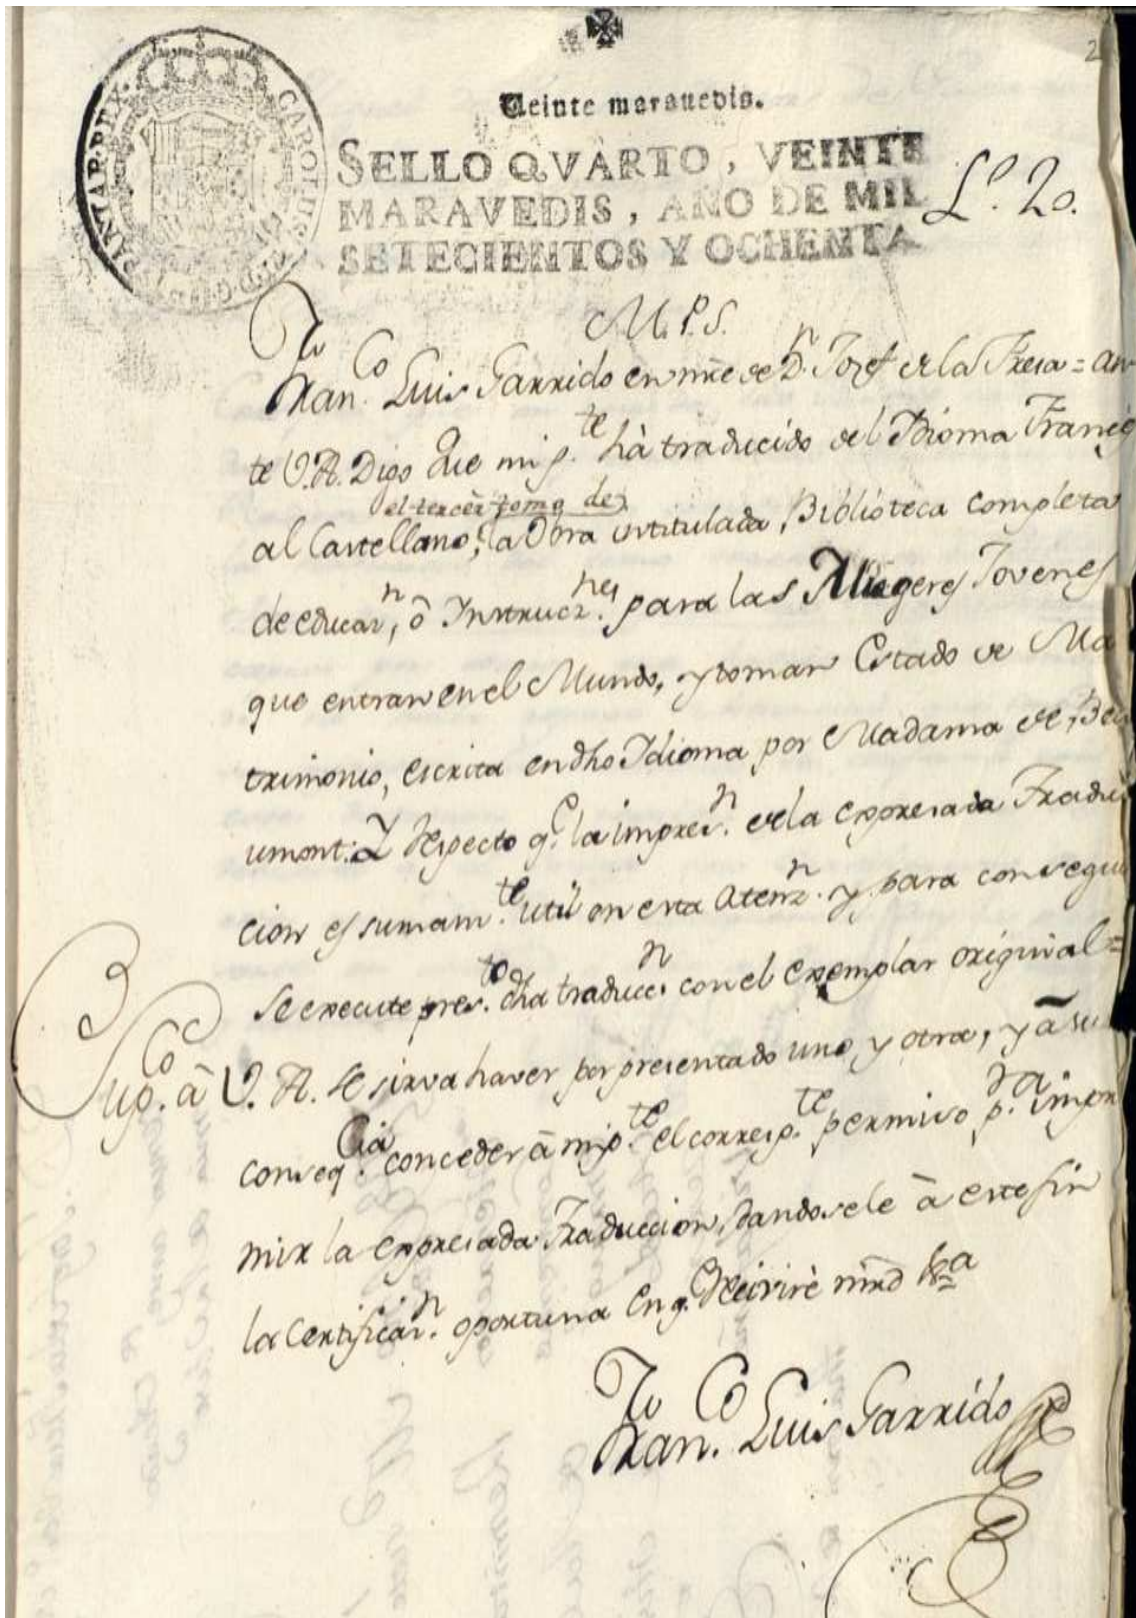 2
Veinte maravedis.
SELLO QVARTO, VEINTE
MARAVEDIS, AÑO DE MIL
SETECIENTOS Y OCHENTA
CAROLUS III D.G.
HISPANIAR.REX.
Lº. 20.
M.P.S.
Franco. Luis Garrido en nre de Dn. Josef de la Fresa = an
te V.A. Digo Que mi pte. hà traducido del Idioma Francés
el tercer tomo de
al Castellano, la Obra intitulada, Biblioteca completa
de educazn, ô Instrucznes. para las Mugeres Jovenes
que entran en el Mundo, y toman Estado de Ma
trimonio, escrita en dho Idioma por Madama de, Be
umont: Y respecto qe. la impresn. de la expresada Traduc
cion es sumamte. util en esta Atenzn. y para conseguir
se execute presto. dha traduccn. con el exemplar original =
Supco. â V.A. se sirva haver por presentado uno y otra, y â su
conseqcia. conceder â mi pte. el correspte. permiso pra. impri
mir la expresada Traduccion, dandosele â este fin
la Certificazn. oportuna en qe. Recivirè mrd
Franco. Luis Garrido